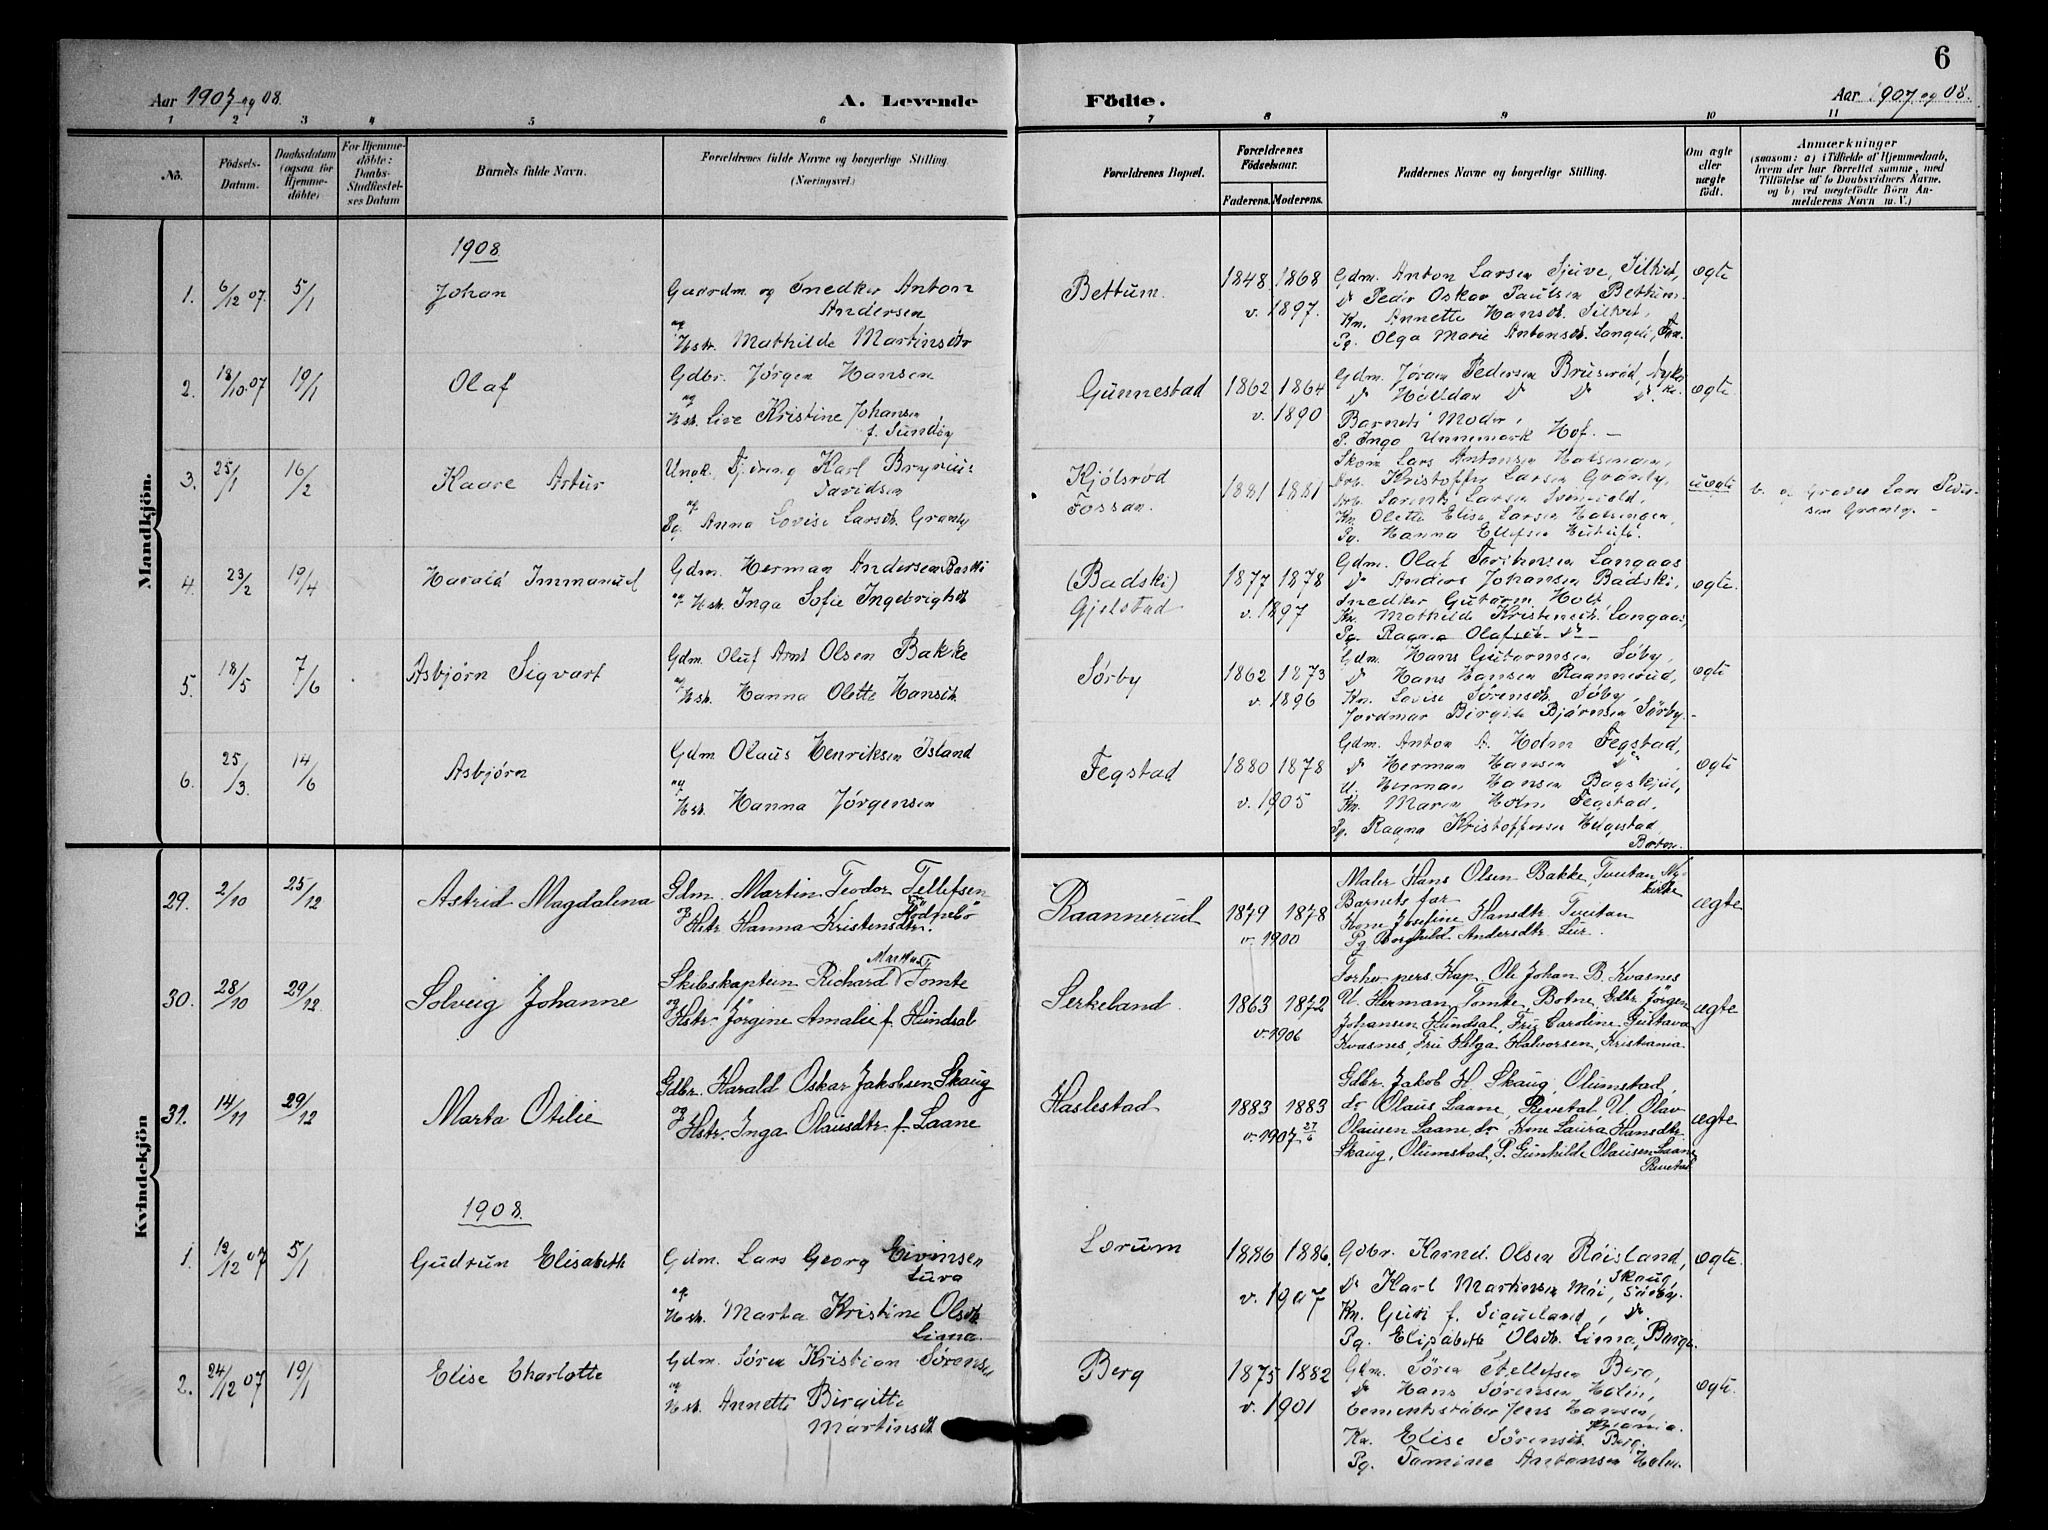 6
Aar 1907 og 08.
A. Levende Födte.
Aar 1907 og 08.
1 2 3 4 5 6 7 8 9 10 11
No.
Födsels-Datum.
Daabsdatum (ogsaa for Hjemme-döbte)
For Hjemme-döbte: Daabs-Stadfæstel-ses Datum
Barnets fulde Navn.
Forældrenes fulde Navne og borgerlige Stilling. (Næringsvei.)
Forældrenes Bopæl.
Forældrenes Födselsaar.
Faderens. Moderens.
Faddernes Navne og borgerlige Stilling.
Om ægte eller uægte födt.
Anmærkninger
(saasom: a) i Tilfælde af Hjemmedaab,
hvem der har forrettet samme, med
Tilföielse af to Daabsvidners Navne.
og b) ved uægtefödte Börn An-
melderens Navn m. V.)
Mandkjön.
1908
1. 6/12 07 5/1 Johan
Gaardm. og Snedker Anton
Andersen
og
Hstr. Mathilde Martinsdtr
Bettum.
1848 1868
v. 1897.
Gdm. Anton Larsen Sjuve, Siltvet,
Do Peder Oskar Paulsen Bettum.
Kn. Annette Hansdt. Siltvet,
Pg. Olga Marie Antonsdt. Langaas,
ægte
2. 18/10 07 19/1 Olaf
Gdbr. Jørgen Hansen
og
Hst. Live Kristine Johansen
f. Sundby
Gunnestad
1862 1864
v. 1890
Gdm. Jørgen Pedersen Bruserød,
Barnets Moder,
P. Inga Unnemark Hof. —
ægte
3. 25/1 16/2 Kaare Artur
Ungk. Karl Brynius
Davidsen
og
Pg. Anna Lovise Larsdt. Granly
Kjólsrød
Fossan.
1881 1881
Skom. Lars Antonsen
Arb. Kristoffer Larsen Granly,
Arb. Larsen
Kn. Olette Elise Larsen
Pg. Hanna Ellefsen
uægte
Graver Lars Peder-
sen Granly. -
4. 23/2 19/4 Harald Immanuel
Gdm. Herman Andersen Baski
og Hst. Inga Sofie Ingebrigtsdt
(Badski)
Gjelstad
1877 1878
v. 1897
Gdm. Olaf Langaas
Do Anders Johansen Badski,
Snedker Gutorm Holt
Kn. Mathilde Kristensdt. Langaas,
Pg. Ragna Olafsdt. — Do —
ægte.
5. 18/5 7/6 Asbjørn Sigvart
Gdm. Oluf Arnt Olsen Bakke
og
Hst. Hanna Olette Hansdt.
Sørby
1862 1873
v. 1896
Gdm. Hans Gutormsen Søby,
Do Hans Hansen Raannerud,
Kn. Lovise Sørensdt. Søby,
Jordmor Birgite Bjørnsen Sørby.-
ægte
6. 25/3. 14/6 Asbjørn
Gdm Olaus Henriksen Island
og
Hst. Hanna Jørgensen
Fegstad
1880 1878
v. 1905
Gdm. Anton A. Holm Fegstad,
Do Herman Hansen Do,
U. Herman Hansen Bagskjul,
Kn. Maren Holm Fegstad,
Pg. Ragna Kristoffersen Helgestad
Botne.
ægte
Kvindekjön
29. 2/10 25/12 Astrid Magdalena
Gdm. Martin Teodor Tellefsen
og Hstr. Hanna Kristensdtr.
Raannerud
1879 1878
v. 1900
Maler Hans Olsen Bakke, Tveitan
Barnets far
Kone Josefine Hansdtr Tveitan
Pg Borghild Andersdtr Lur.
ægte
30. 28/10 29/12 Solveig Johanne
Skibskaptein Richard Tomte
og
Hstr. Jörgine Amalie f. Hundsal
Serkeland.
1863 1872
v. 1906
Forhv. pers. Kap. Ole Johan B. Kvasnes
U. Herman Tomte Botne, Gdbr. Jörgen
Johansen Hundsal, Fru Caroline Gustava
Kvasnes, Fru Helga Halvorsen, Kristiania
ægte
31. 14/11 29/12 Marta Otilie
Gdbr. Harald Oskar Jakobsen Skaug
og
Hstr. Inga Olausdtr. f. Laane
Haslestad
1883 1883
v. 1907 27/6
Gdbr. Jakob H. Skaug, Olumstad,
do Olaus Laane, Revetal, U. Olav
Olausen Laane, do Kone Laura Hansdtr.
Skaug, Olumstad, P. Gunhilde Olausen Laane
Revetal
ægte
1908.
1. 12/12 07 5/1 Gudrun Elisabeth
Gdm. Lars Georg Eivinsen
Lura
og
Hst. Marta Kristine Olsdt.
Linna.
Lorum
1886 1886.
v. 1907
Gdbr. Karned. Olsen Röisland,
Do Karl Martinsen Skaug,
Kn. Guri f. Do.
Pg. Elisabeth Olsdt. Linna, Borge.
ægte.
2. 24/12 07 19/1 Elise Charlotte
Gdm. Søren Kristian Sørensen
og
Hst. Annette Birgitte
Martinsdt.
Berg
1875 1882
v. 1901
Gdm. Søren Berg,
Do Hans Sørensen Holm,
Cementsstøber Jens Hansen,
Kr.ania.
Kn. Elise Sørensdt. Berg.
Pg. Tomine Antonsen Holm.
ægte.